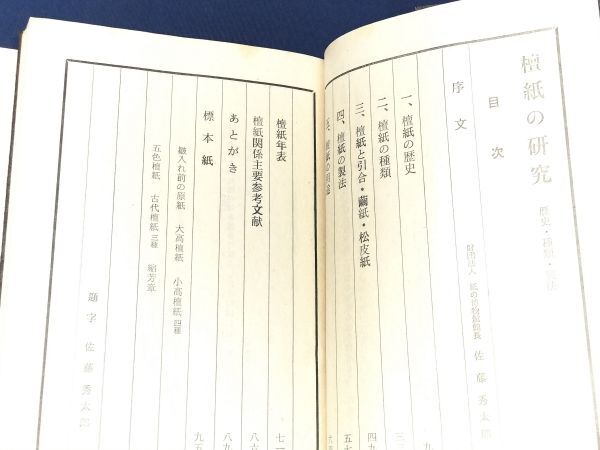 檀紙の研究 歴史・種類・製法
目次
序文 財団法人 紙の博物館館長 佐藤秀太郎
一、檀紙の歴史
二、檀紙の種類 三
三、檀紙と引合・繭紙・松皮紙 四九
四、檀紙の製法 五七
五、檀紙の用途
檀紙年表 七一
檀紙関係主要参考文献 八六
あとがき 八九
標本紙 九五
皺入れ前の原紙 大高檀紙 小高檀紙 四種
五色檀紙 古代檀紙 三種 縮芳章
題字 佐藤秀太郎